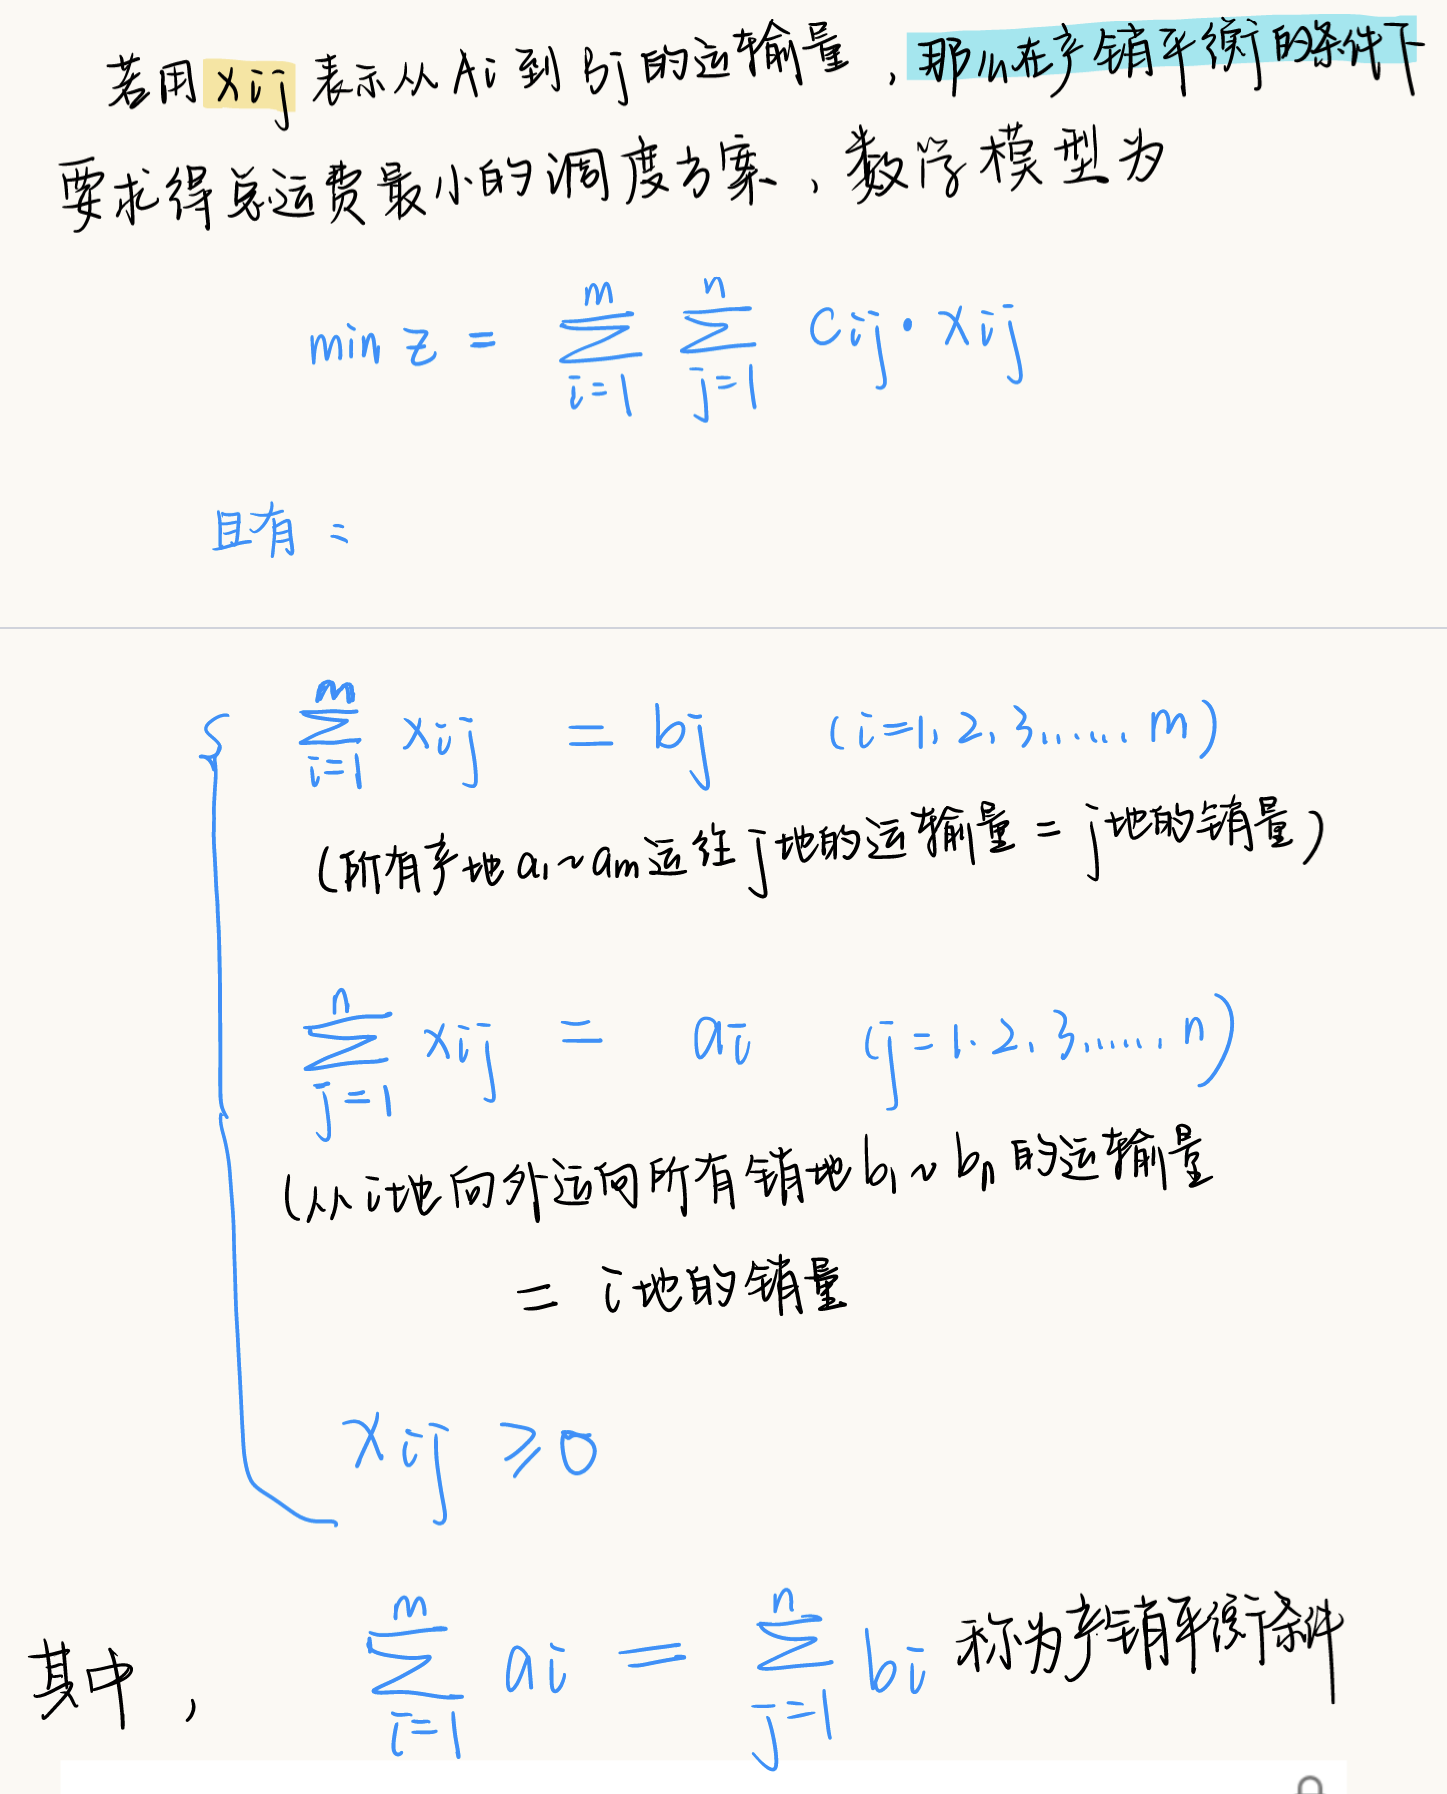 若用 xij 表示从 Ai 到 Bj 的运输量,那么在产销平衡的条件下
要求得总运费最小的调度方案,数学模型为
min z = ∑_{i=1}^{m} ∑_{j=1}^{n} cij · xij
且有:
{ ∑_{i=1}^{m} xij = bj (i=1, 2, 3, ..... m)
(所有产地 a1~am 运往 j 地的运输量 = j 地的销量)
∑_{j=1}^{n} xij = ai (j=1. 2. 3, ....., n)
(从 i 地向外运向所有销地 b1~bn 的运输量
= i 地的销量
xij ≥ 0
其中, ∑_{i=1}^{m} ai = ∑_{j=1}^{n} bi 称为产销平衡条件